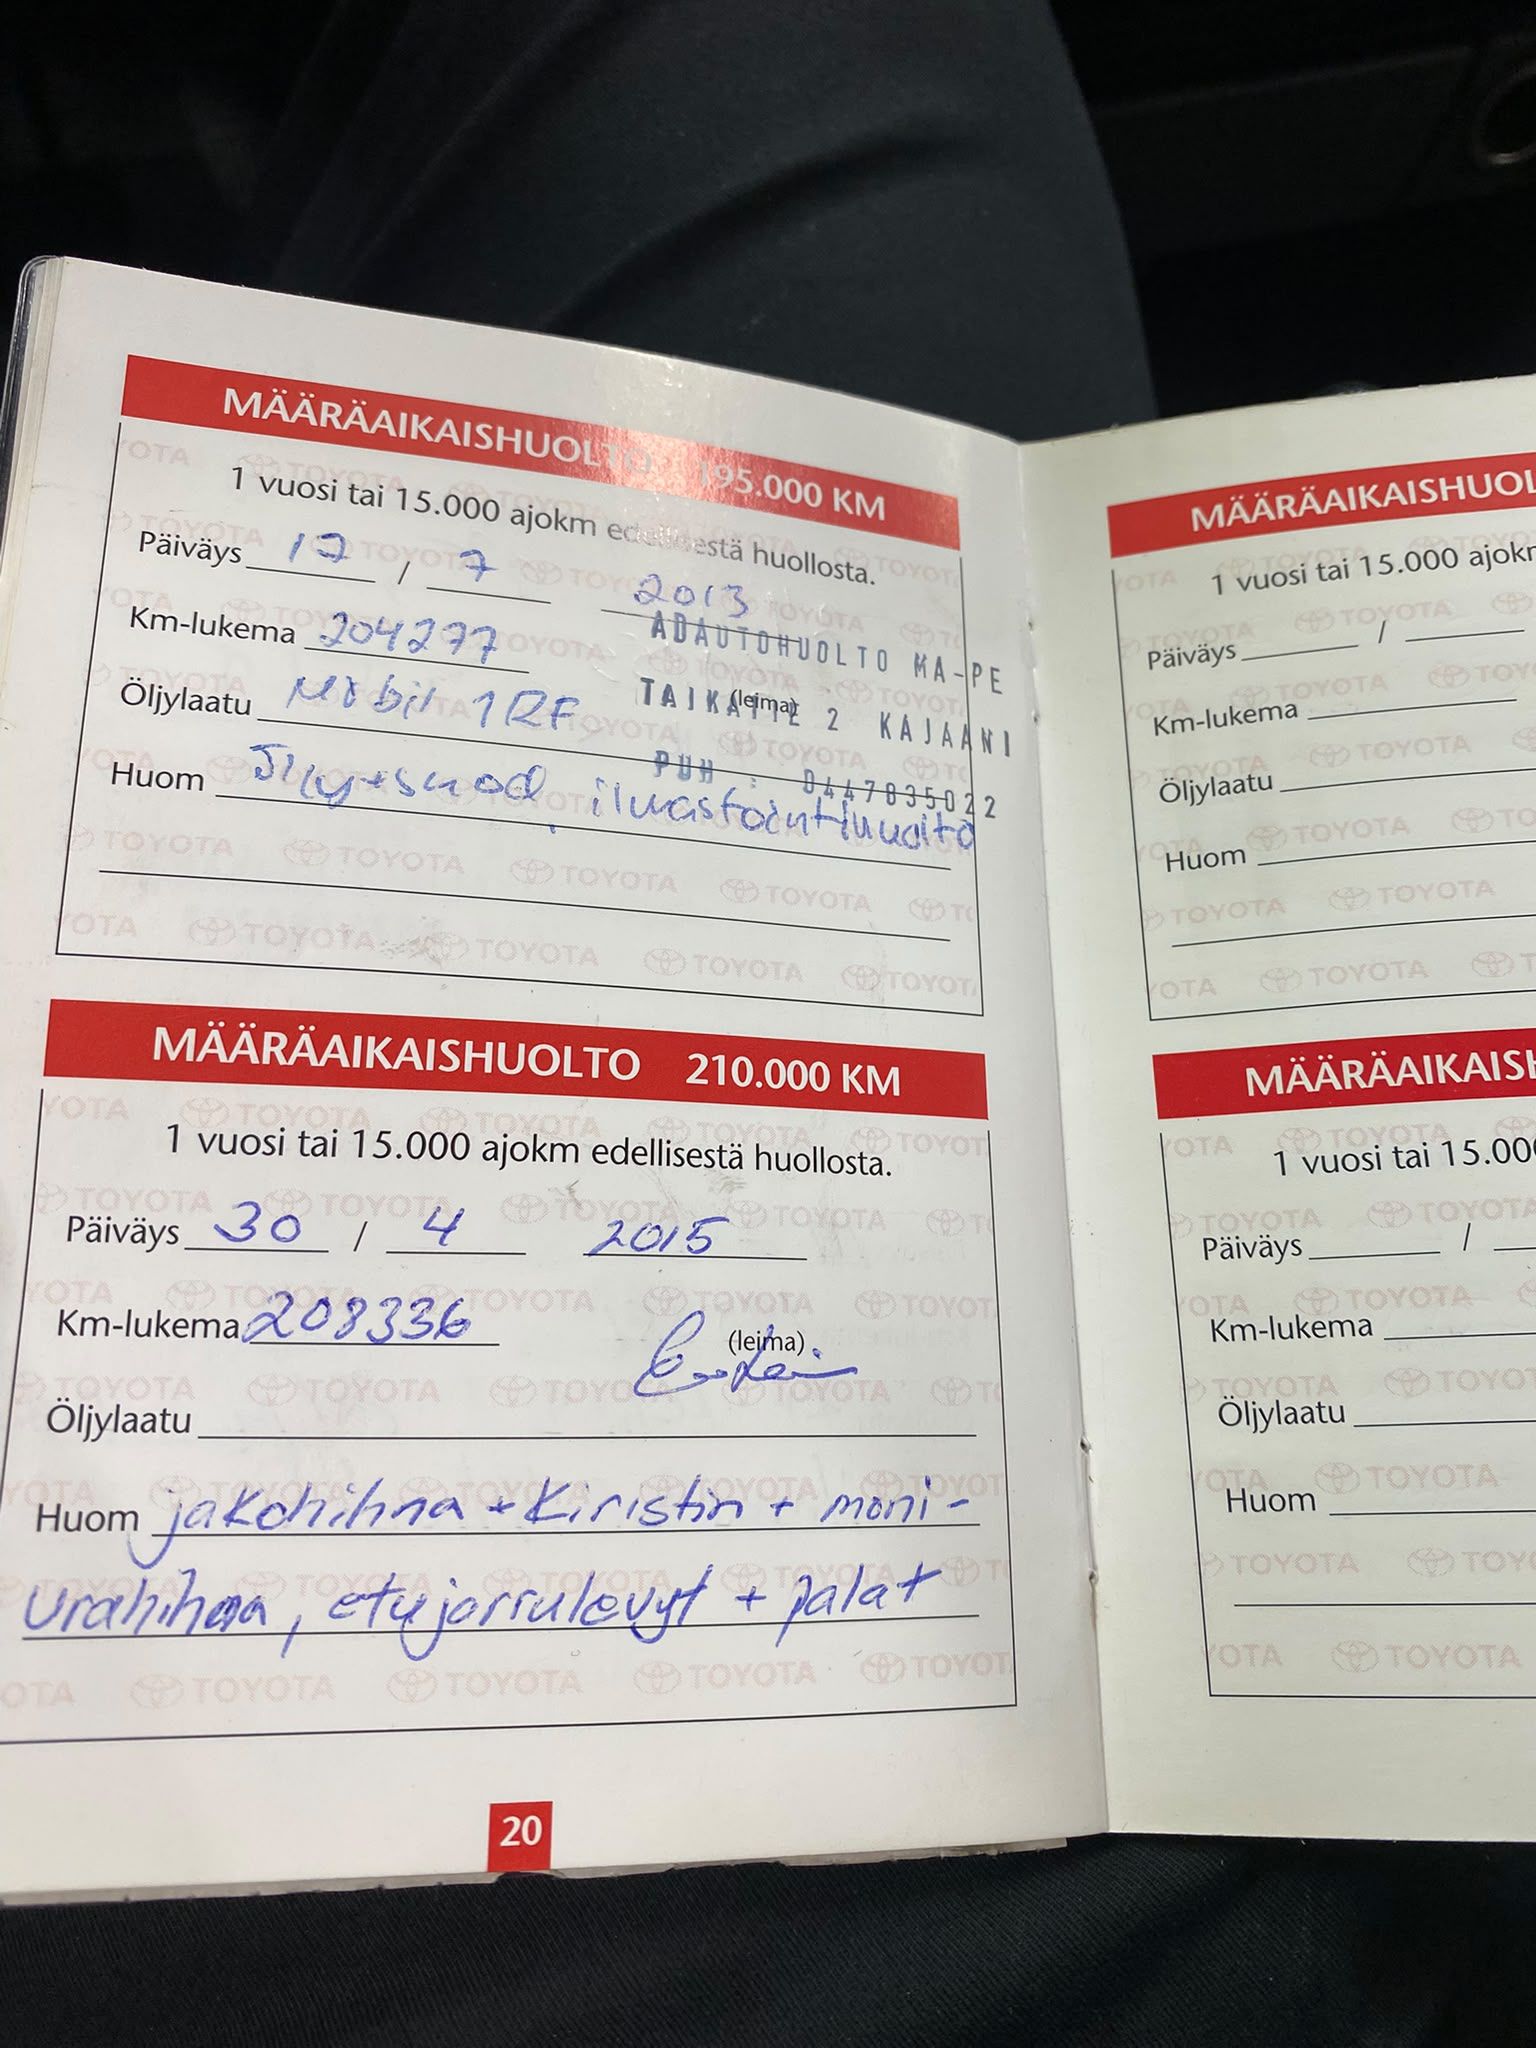 MÄÄRÄAIKAISHUOLTO 195.000 KM
1 vuosi tai 15.000 ajokm edellisestä huollosta.
Päiväys 17 / 7 2013
Km-lukema 204277
ADAUTOHUOLTO MA-PE
Öljylaatu Mobil 1 RF
TAIKATIE 2 KAJAANI
(leima)
PUH : 0447835022
Huom Öljy+suod, ilmastointihuolto
MÄÄRÄAIKAISHUOLTO 210.000 KM
1 vuosi tai 15.000 ajokm edellisestä huollosta.
Päiväys 30 / 4 2015
Km-lukema 208336
(leima)
Öljylaatu
Huom jakohihna + Kiristin + moni-
urahihna, etujarrulevyt + palat
20
MÄÄRÄAIKAISHUOL
1 vuosi tai 15.000 ajok
Päiväys /
Km-lukema
Öljylaatu
Huom
MÄÄRÄAIKAISH
1 vuosi tai 15.00
Päiväys /
Km-lukema
Öljylaatu
Huom